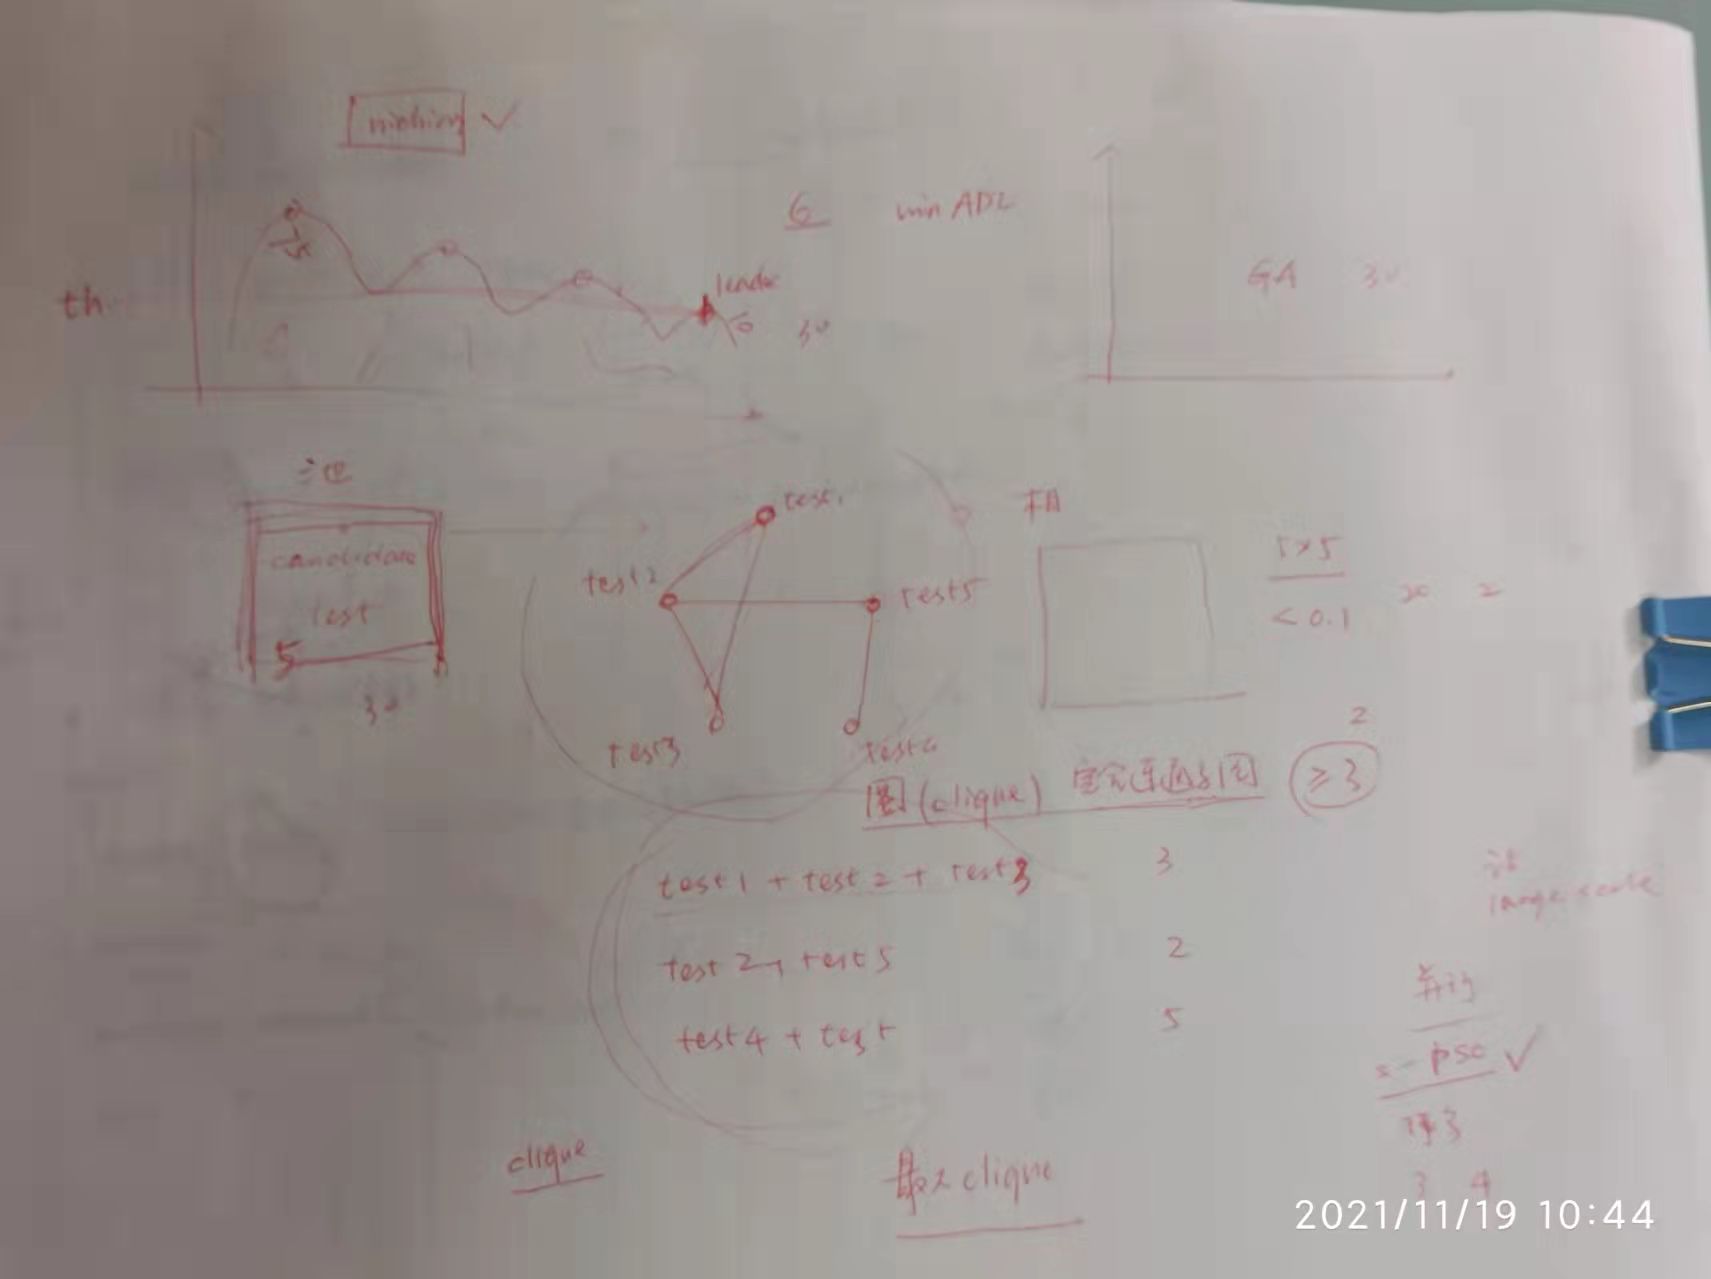 niching
6 min ADL
th
leader
30
GA 30
池
candidate
test
5
30
test1
test2
test5
test3
相
5×5
<0.1
2
团(clique) 完全连通子图 ≥3
test1 + test2 + test3 3
test 2 + test5 2
test4 + test 5
large scale
pso
clique
最大clique
3 4
2021/11/19 10:44